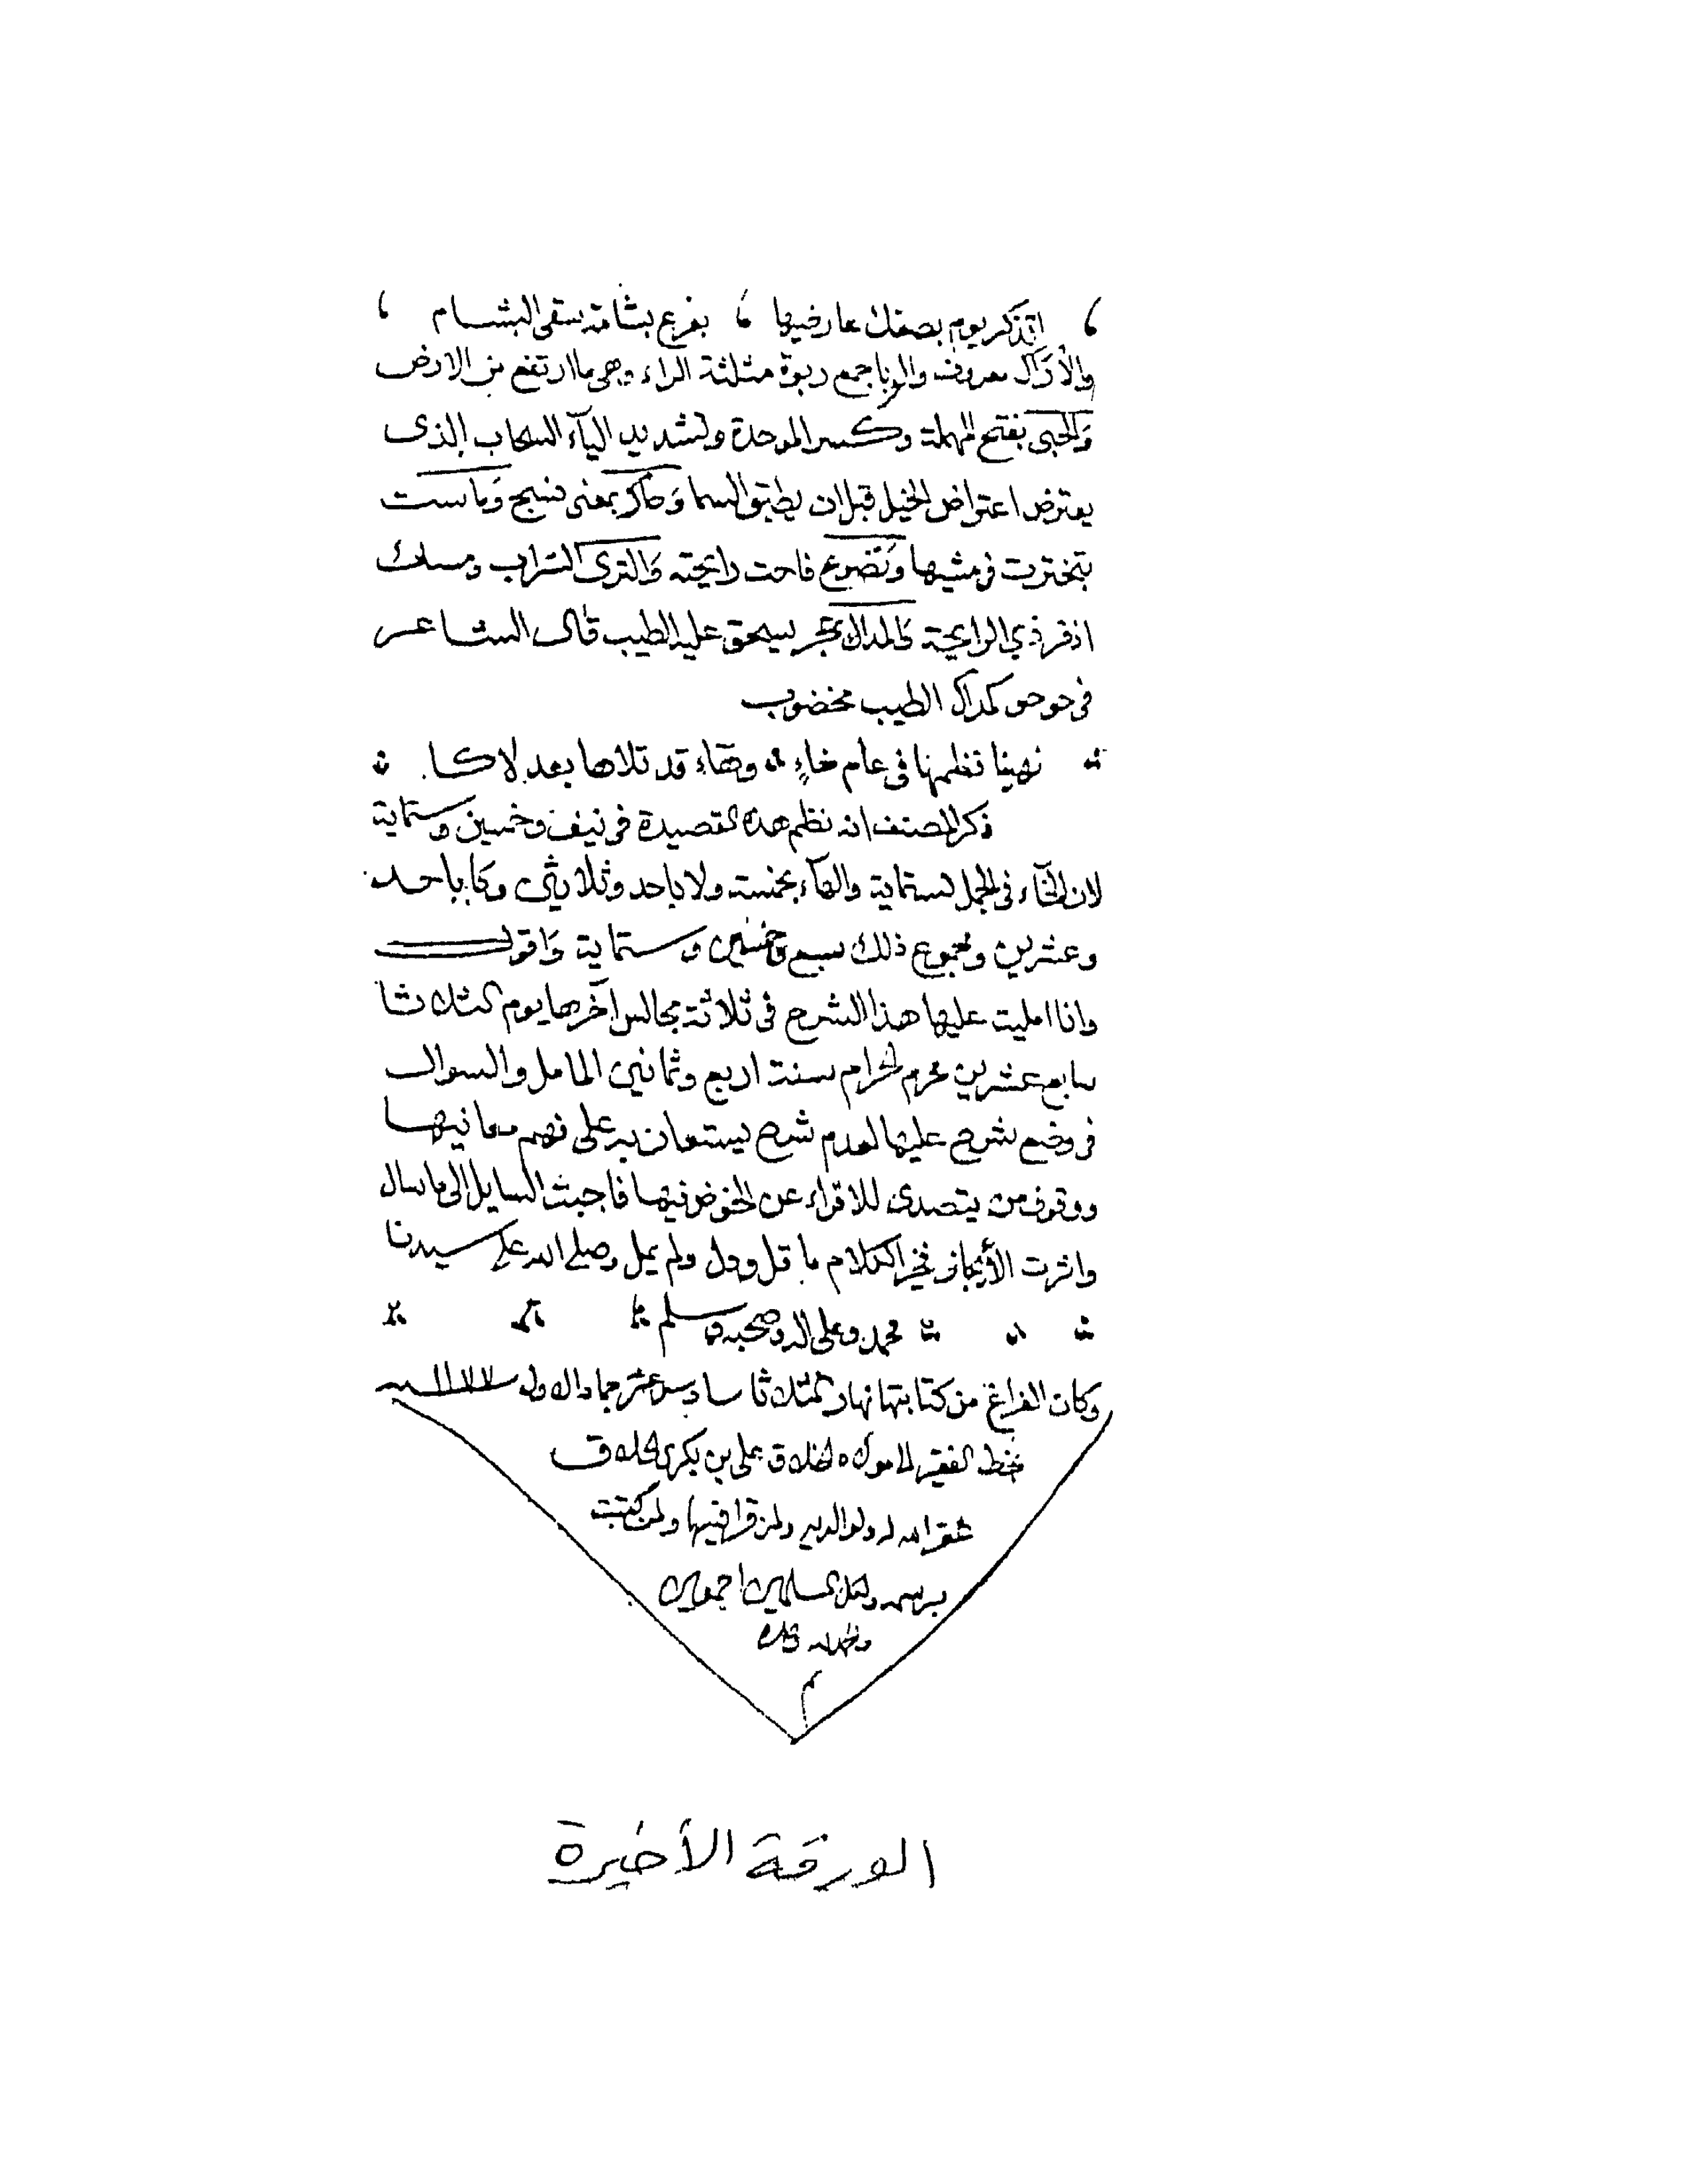 اتذكر يوم بصقل عارضيها ، بفرع بشامة سقى البشام ،
والأراك معروف والربا جمع ربوة مثلثة الراء وهى ما ارتفع من الارض
والحبى بفتح المهملة وكسر الموحدة وتشديد اليآء السحاب الذى
يعترض اعتراض الخيل قبل ان يطبق السما وحاك بمعنى نسج وماست
تبخترت فى مشيها وتضوع فاحت رايحته والثرى التراب ومسك
اذفر ذي الرايحة والمداك حجر يسحق عليه الطيب قال الشاعر
فى جوجو كمداك الطيب مخضوب
نهينا نظمها فى عام خاءٍ وهآء قد تلاها بعد لا كا
ذكر المصنف انه نظم هذه القصيدة فى نيف وخمسين وستماية
لان الخآء فى الجمل لستماية والهآء بخمسة ولا باحد وثلاثين وكا باحد
وعشرين ومجموع ذلك سبع وخمسين وستماية واقول
وانا امليت عليها هذا الشرح فى ثلاثة مجالس آخرها يوم الثلاثا
سابع عشرين محرم الحرام سنة اربع وثمانين الامل والسوال
فى وضع شرح عليها لعدم شرح يستعان به على فهم معانيها
ووقوف من يتصدى للاقراء عن الخوض فيها فاجبت السايل الى ما سال
واثرت الأيجاز فخير الكلام ما قل ودل ولم يمل وصلى الله على سيدنا
محمد وعلى اله وصحبه وسلم
وكان الفراغ من كتابتها نهار الثلاثا سادس عشر جماد الاول سنة ١١٧٧
بخط الفقير الى مولاه الخلاق على بن بكرى الحلاق
غفر الله له ولوالديه ولمن قرا فيها ولمن كتبت
برسمه ولكل المسلمين اجمعين
والحمد لله
م
الورقة الأخيرة